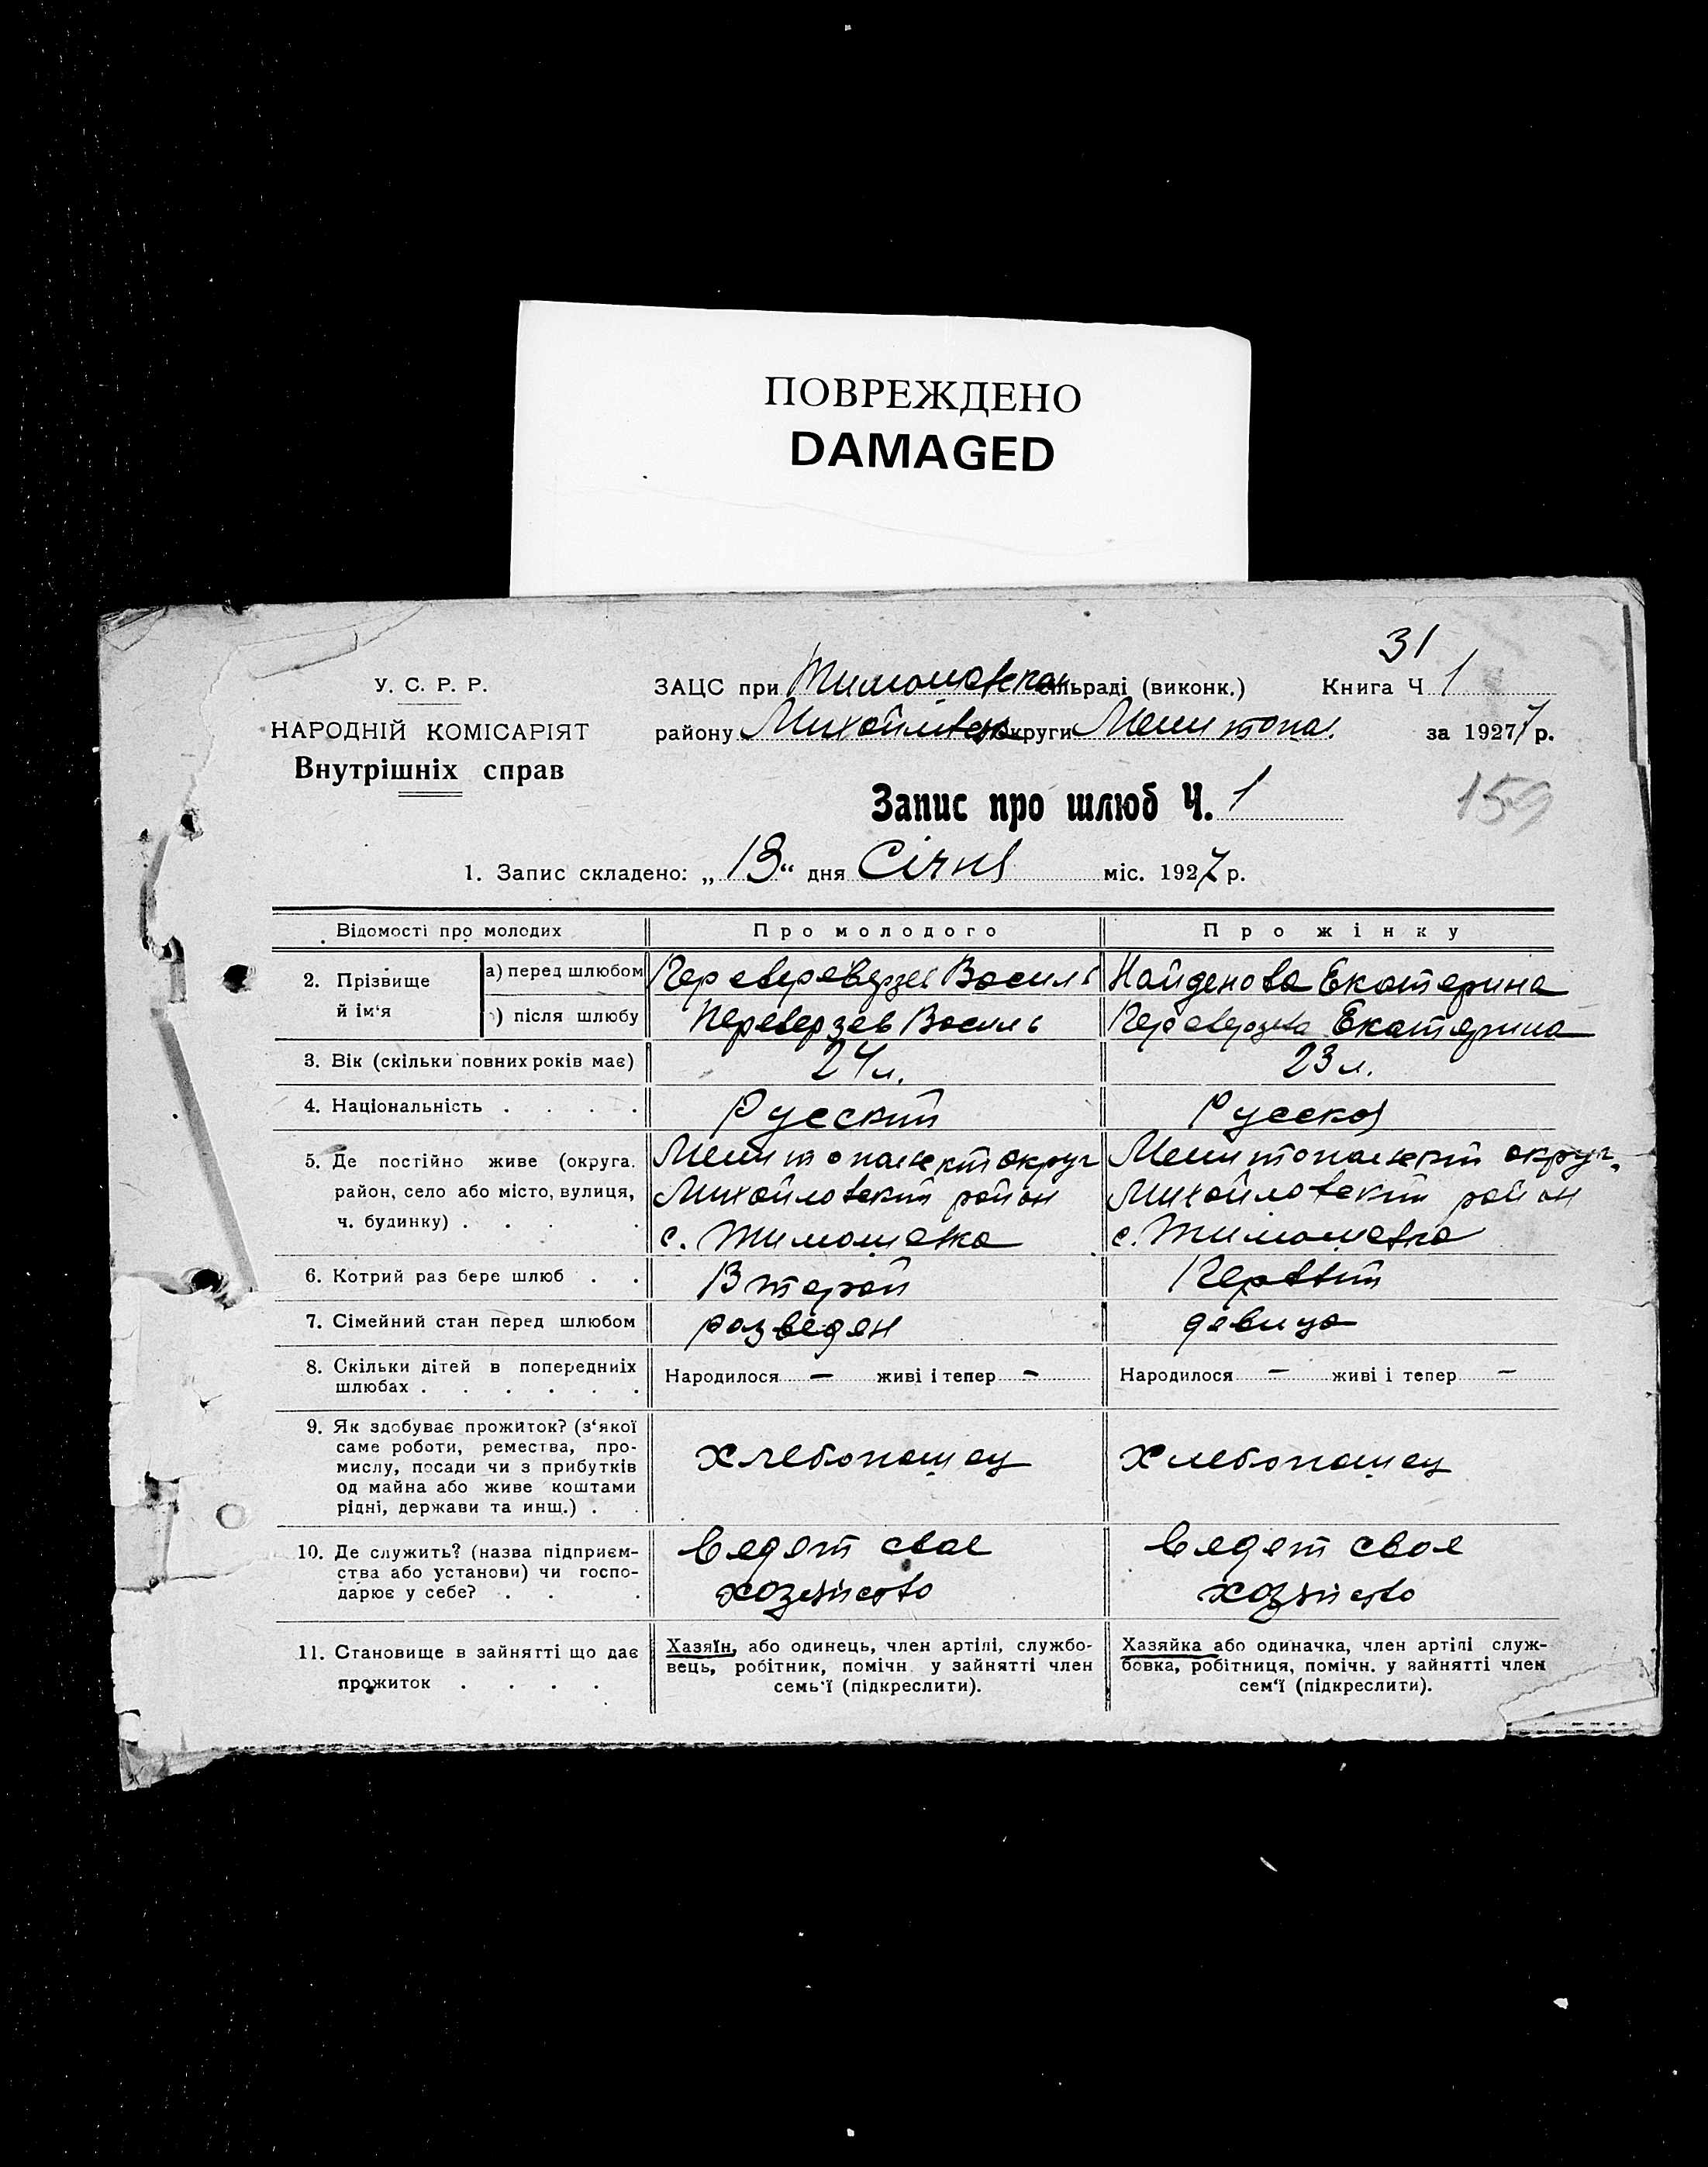 ПОВРЕЖДЕНО
DAMAGED
31
У. С. Р. Р.
НАРОДНІЙ КОМІСАРІЯТ
Внутрішніх справ
ЗАЦС при Тимошевской сільраді (виконк.) Книга Ч 1
району Михайлівск округи Мелитопол. за 1927 р.
Запис про шлюб Ч. 1
159
1. Запис складено: „13“ дня Січня міс. 1927 р.
Відомості про молодих Про молодого Про жінку
2. Прізвище й ім'я а) перед шлюбом Переверзев Василь Найденова Екатерина
) після шлюбу Переверзев Василь Переверзева Екатерина
3. Вік (скільки повних років має) 24 л. 23 л.
4. Національність . . . . Русский Русская
5. Де постійно живе (округа. Мелитопольский округ Мелитопольский округ,
район, село або місто, вулиця, Михайловский район Михайловский район
ч. будинку) . . . . с. Тимошевка с. Тимошевка
6. Котрий раз бере шлюб . . Второй Первый
7. Сімейний стан перед шлюбом розведен девица
8. Скільки дітей в попередниіх Народилося — живі і тепер — Народилося — живі і тепер —
шлюбах . . . . . .
9. Як здобуває прожиток? (з'якої
саме роботи, ремества, про-
мислу, посади чи з прибутків хлебопашец хлебопашец
од майна або живе коштами
рідні, держави та инш.) . .
10. Де служить? (назва підприєм- ведет свое ведет свое
ства або установи) чи госпо-
дарює у себе? . . . хозяйство хозяйство
11. Становище в зайнятті що дає Хазяїн, або одинець, член артілі, службо- Хазяйка або одиначка, член артілі служ-
вець, робітник, помічн. у зайнятті член бовка, робітниця, помічн. у зайнятті член
прожиток . . . . семь'ї (підкреслити). сем'ї (підкреслити).